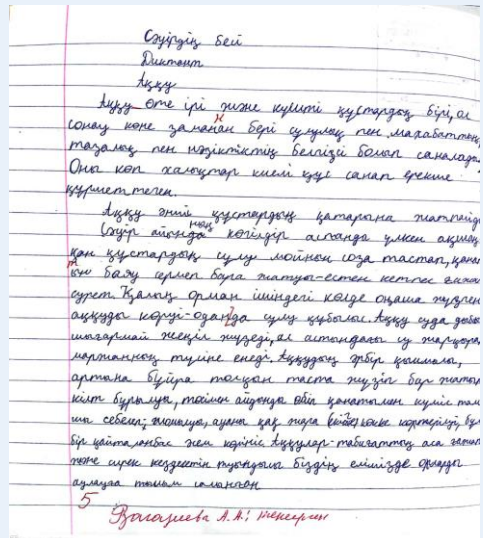 Сәуірдің бесі
Диктант
Аққу
Аққу өте ірі және күшті құстардың бірі, ол
сонау көне заманан бері сұлулық пен махабаттың,
тазалық пен нәзіктіктің белгісі болып саналады
Оны көп халықтар киелі құс санап ерекше
құрметтеген.
Аққу әнші құстардың қатарына жатпайды
Сәуір айында көгілдір аспанда үлкен
қан құстардың сұлу мойнын соза тастап, қана
ын баяу сермеп бара жатуы-естен кетпес
сурет. Қалың орман ішіндегі көлде оңаша жүзген
аққуды көруі-оданда сұлу құбылыс. Аққу суда дыбы
шығармай жеңіл жүзеді, ал астындағы су жарқыра
маржанның түсіне енеді. Аққудың әрбір қимылы,
артына бұйра толқын таста жүзіп бар жатып
кілт бұрылуы, төсімен айдынды қанатымен күміс там
шы себелеп, ауаны қақ жара көкке көтерілуі, бұл
бір қайталанбас әсем көрініс Аққулар-табиғаттың аса
және сирек кездесетін туындысы біздің елімізде оларды
аулауға тыйым салынған
5
А.А.